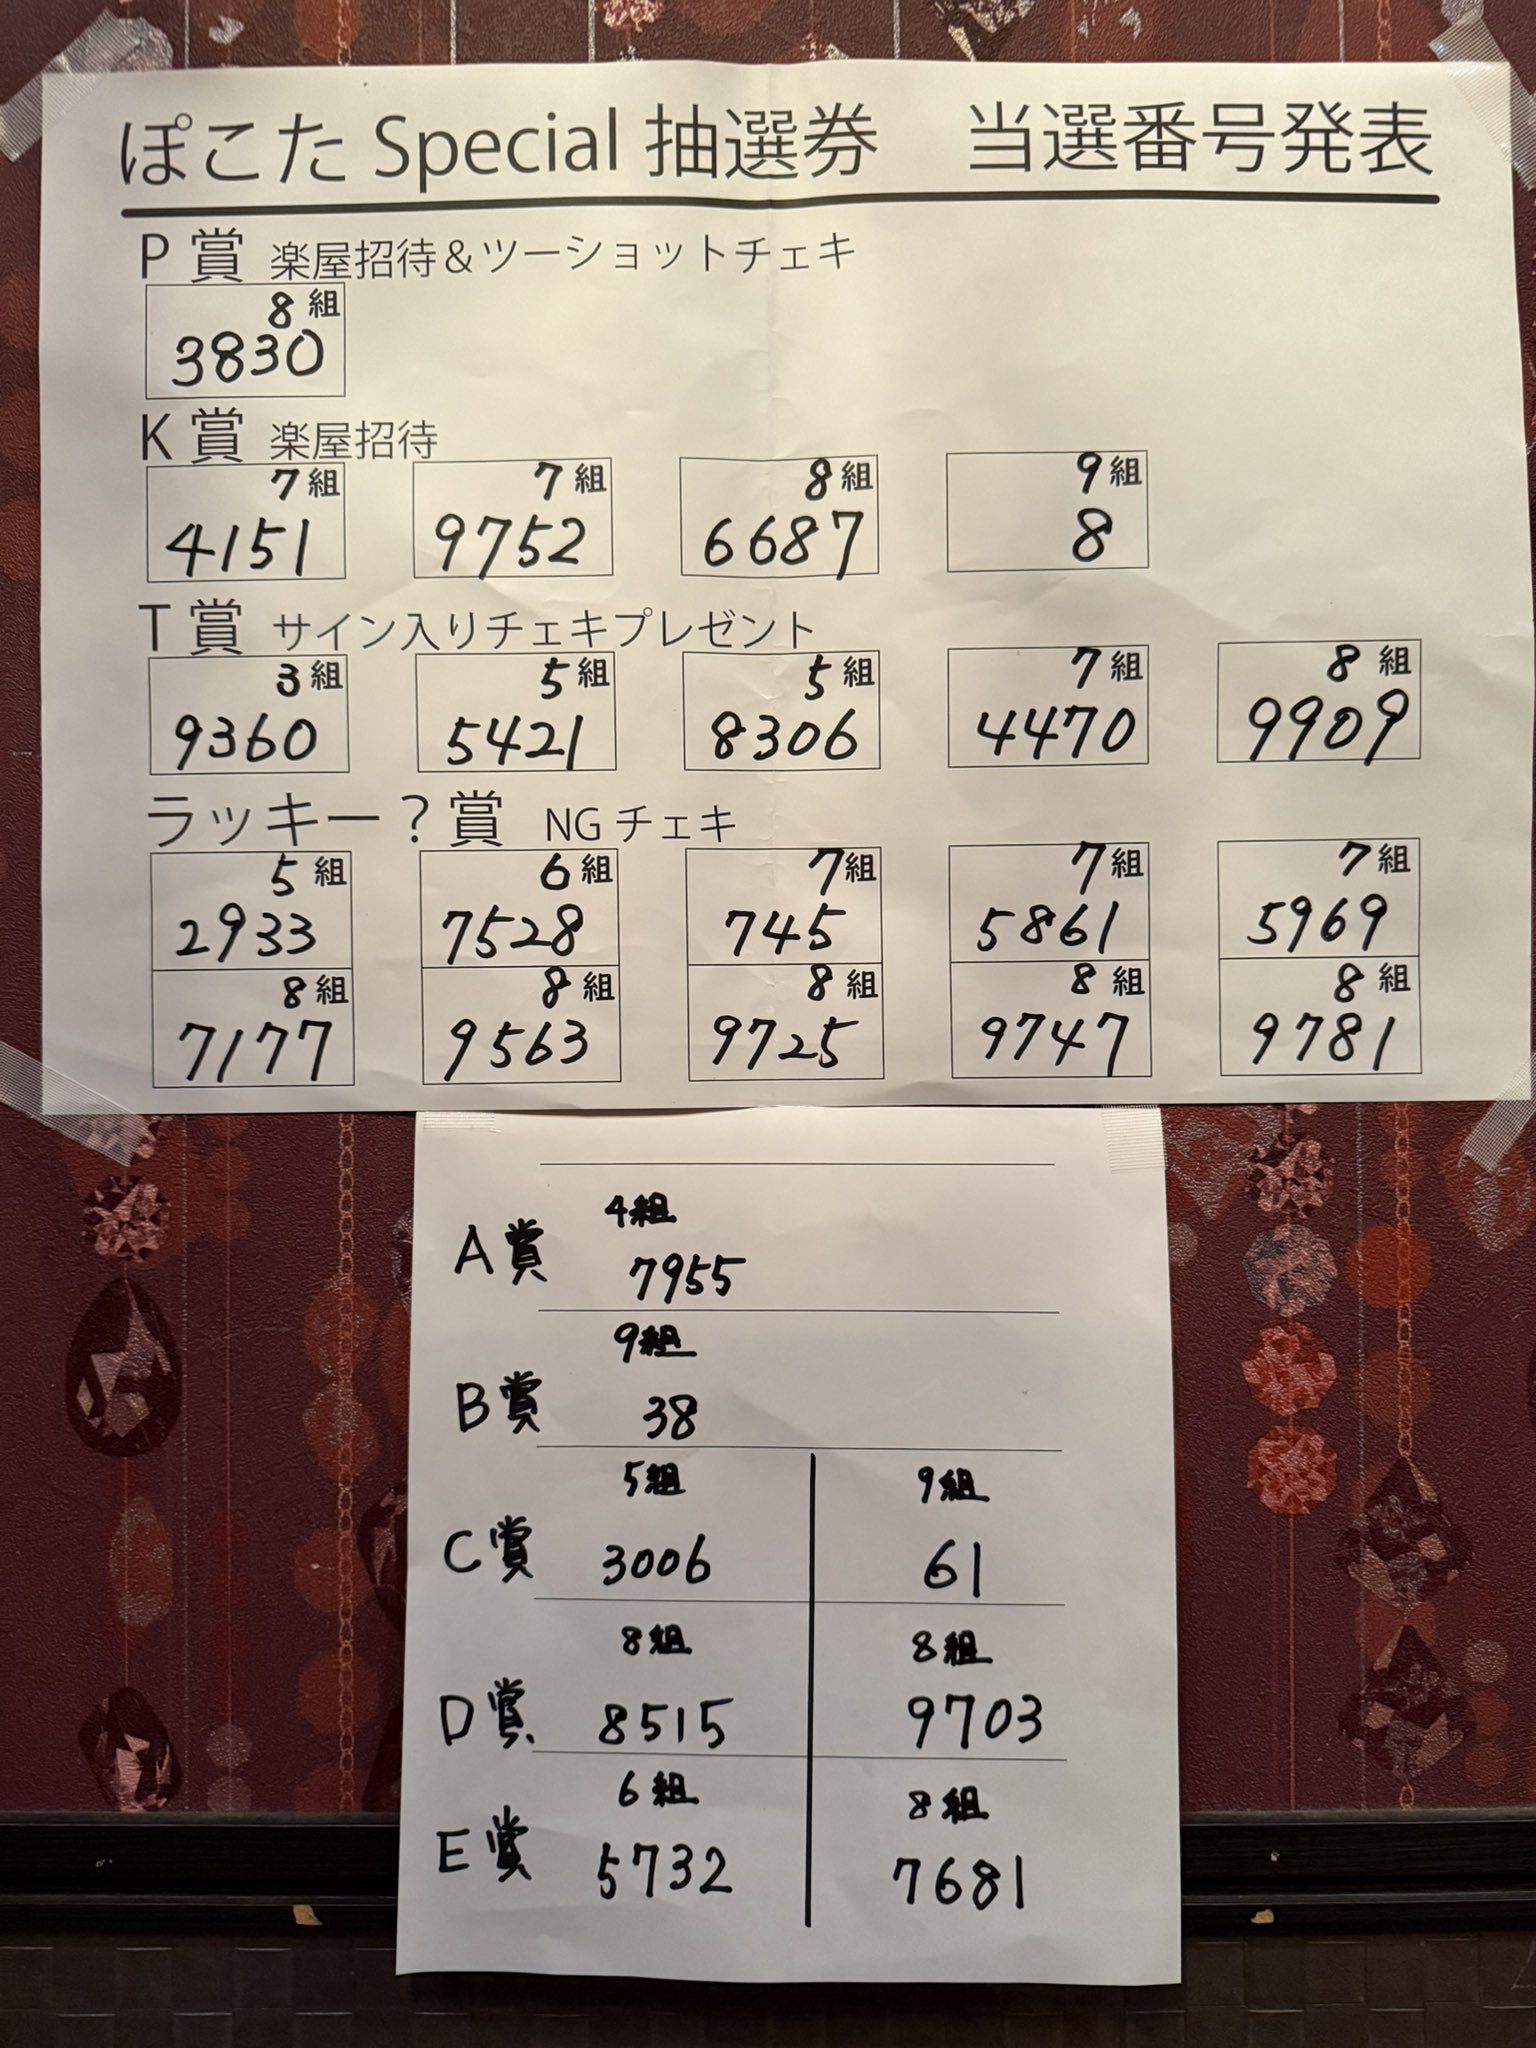 ぽこた Special 抽選券　当選番号発表
P 賞 楽屋招待＆ツーショットチェキ
8 組
3830
K 賞 楽屋招待
7 組 7 組 8 組 9 組
4151 9752 6687 8
T 賞 サイン入りチェキプレゼント
3 組 5 組 5 組 7 組 8 組
9360 5421 8306 4470 9909
ラッキー？賞 NG チェキ
5 組 6 組 7 組 7 組 7 組
2933 7528 745 5861 5969
8 組 8 組 8 組 8 組 8 組
7177 9563 9725 9747 9781
4組
A賞 7955
9組
B賞 38
5組 9組
C賞 3006 61
8組 8組
D賞 8515 9703
6組 8組
E賞 5732 7681